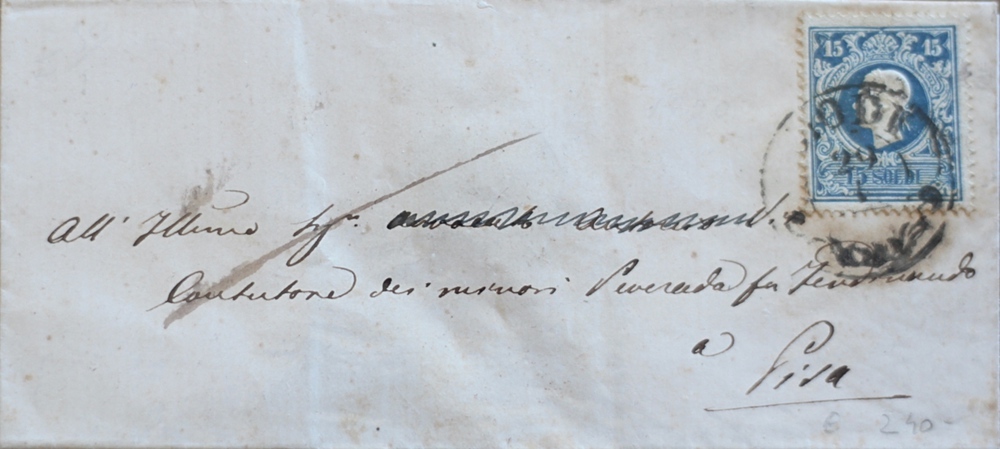 15 15
LODI
29
15 SOLDI
All' Illmo Sig.r
Contutore dei minori Peverada fu Ferdinando
a
Pisa
€ 240-